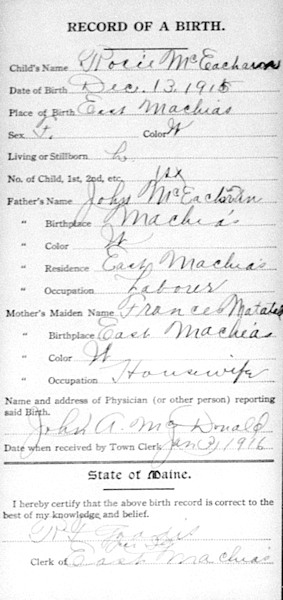 RECORD OF A BIRTH.
Child's Name Rosie McEacharn
Date of Birth Dec. 13, 1915
Place of Birth East Machias
Sex F. Color W
Living or Stillborn L
No. of Child, 1st, 2nd, etc. 1st
Father's Name John McEachran
" Birthplace Machias
" Color W
" Residence East Machias
" Occupation Laborer
Mother's Maiden Name Frances
" Birthplace East Machias
" Color W
" Occupation Housewife
Name and address of Physician (or other person) reporting
said Birth.
John A. McDonald
Date when received by Town Clerk Jan 3, 1916
State of Maine.
I hereby certify that the above birth record is correct to the
best of my knowledge and belief.
Clerk of East Machias